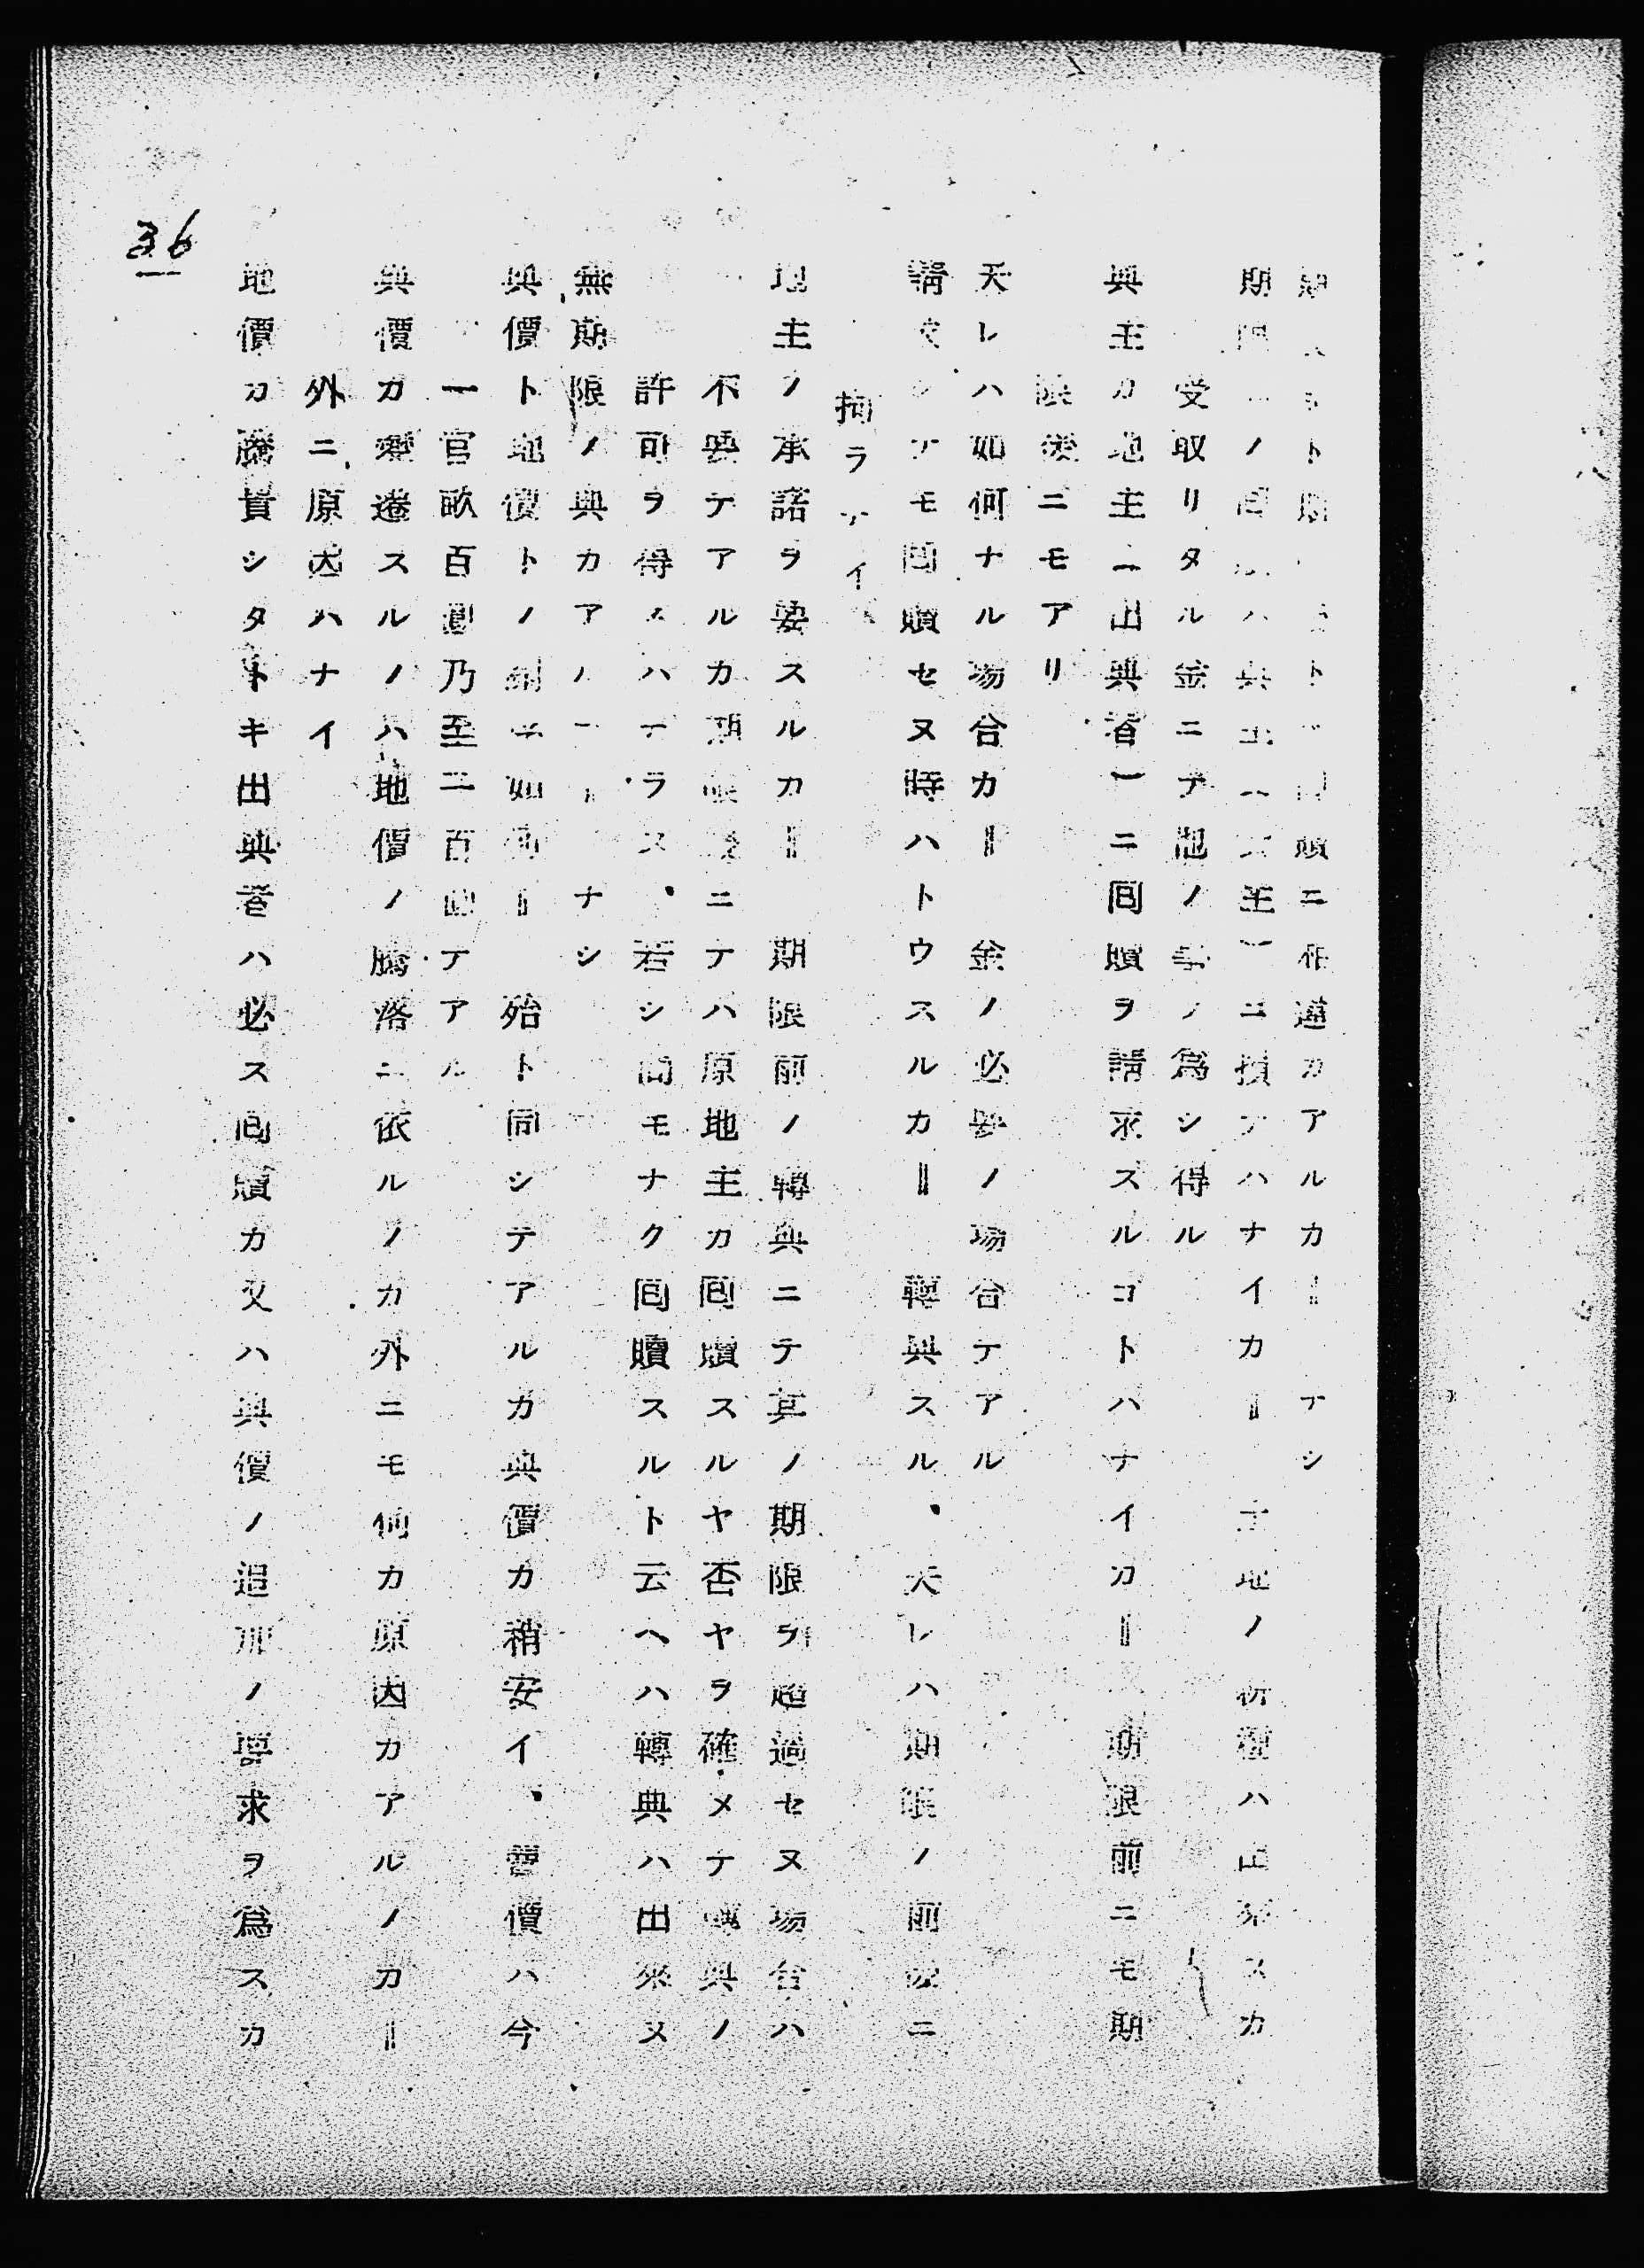 ト 回贖ニ相違カアルカ‖ ナシ
期 ノ ハ 典主ハ 主ニ損テハナイカ‖ 土地ノ ハ スカ
受取リタル金ニテ他ノ事ノ為シ得ル
典主カ地主ニ出典者ニ回贖ヲ請求スルコトハナイカ‖又期限前ニモ期
限後ニモアリ
夫レハ如何ナル場合カ‖ 金ノ必要ノ場合テアル
請求シテモ回贖セヌ時ハトウスルカ‖ 轉典スル、夫レハ期限ノ前後ニ
拘ラナイ
地主ノ承諾ヲ要スルカ‖ 期限前ノ轉典ニテ其ノ期限ヲ超過セヌ場合ハ
不要テアルカ期限後ニテハ原地主カ回贖スルヤ否ヤヲ確メテ轉典ノ
許可ヲ得ネハナラヌ、若シ間モナク回贖スルト云ヘハ轉典ハ出來ヌ
無期限ノ典カアルカ‖ ナシ
典價ト地價トノ割合如何‖ 殆ト同シテアルカ典價カ稍安イ、賣價ハ今
一官畝百圓乃至二百圓テアル
典價カ變遷スルノハ地價ノ騰落ニ依ルノカ外ニモ何カ原因カアルノカ‖
外ニ原因ハナイ
地價カ騰貴シタトキ出典者ハ必ス回贖カ又ハ典價ノ追加ノ要求ヲ為スカ
36